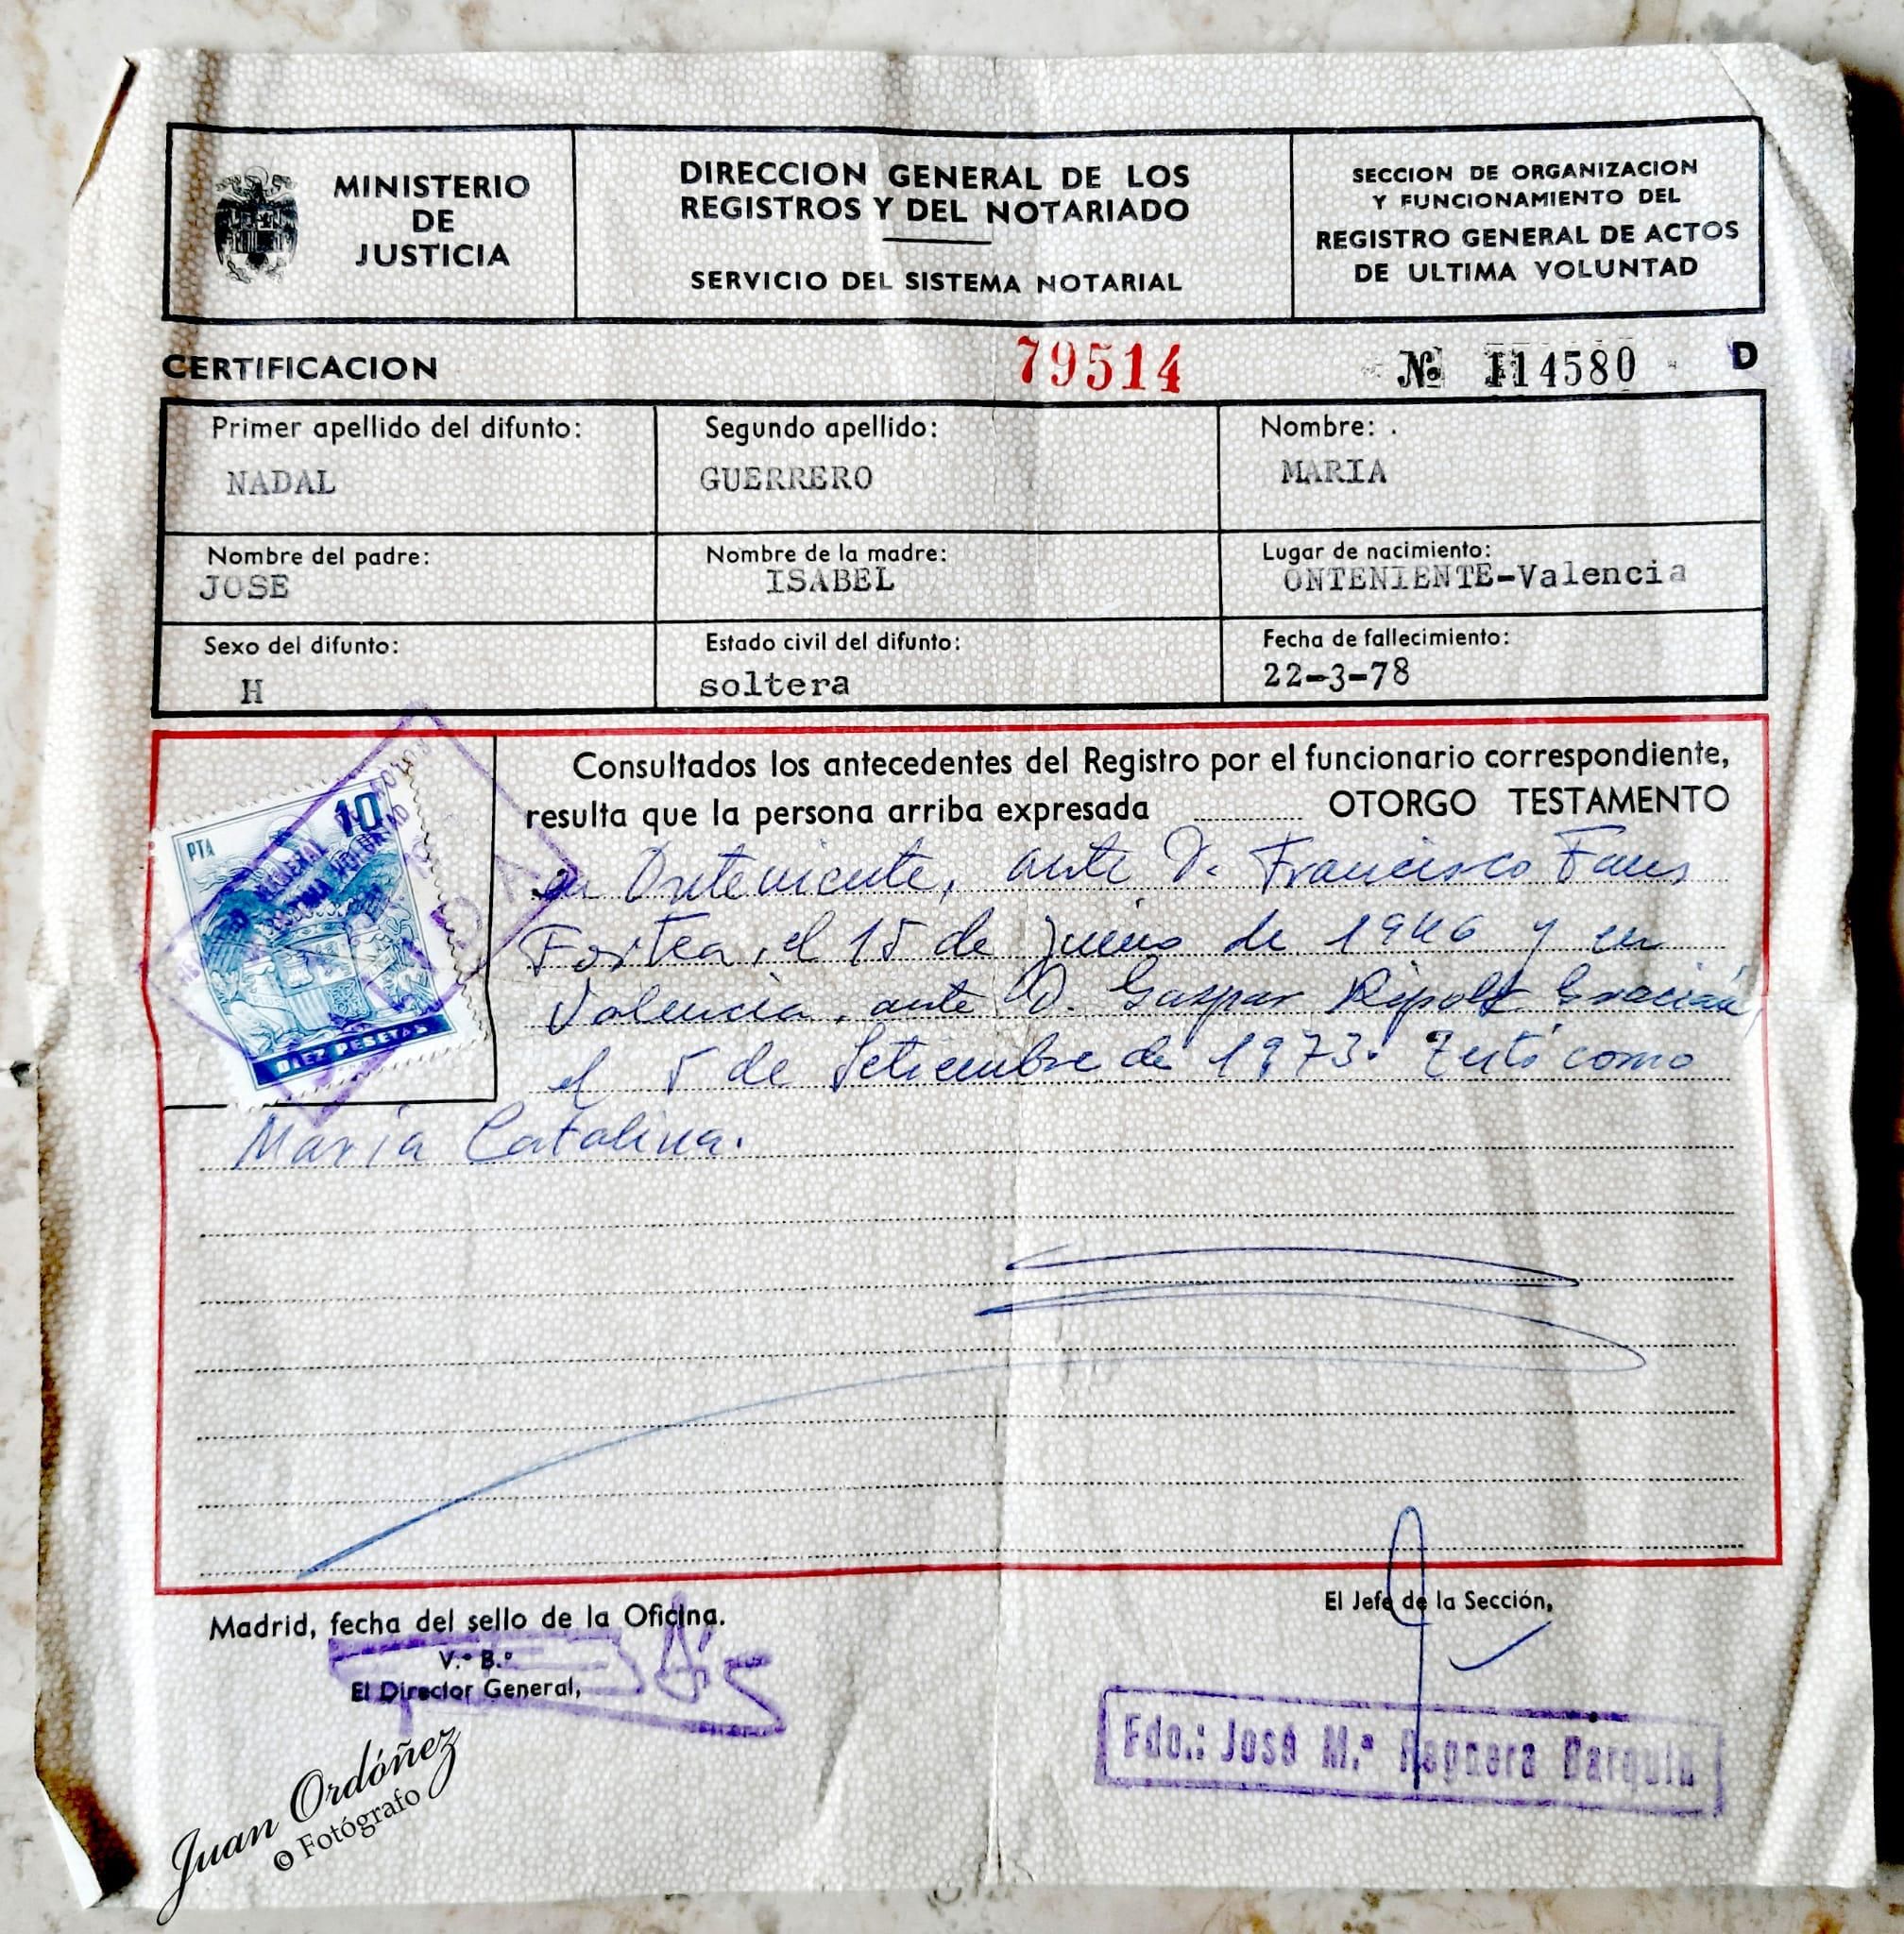 MINISTERIO
DE
JUSTICIA
DIRECCION GENERAL DE LOS
REGISTROS Y DEL NOTARIADO
SERVICIO DEL SISTEMA NOTARIAL
SECCION DE ORGANIZACION
Y FUNCIONAMIENTO DEL
REGISTRO GENERAL DE ACTOS
DE ULTIMA VOLUNTAD
CERTIFICACION
79514
№ 114580
D
Primer apellido del difunto:
NADAL
Segundo apellido:
GUERRERO
Nombre:
MARIA
Nombre del padre:
JOSE
Nombre de la madre:
ISABEL
Lugar de nacimiento:
ONTENIENTE-Valencia
Sexo del difunto:
H
Estado civil del difunto:
soltera
Fecha de fallecimiento:
22-3-78
10
PTA
DIEZ PESETAS
Consultados los antecedentes del Registro por el funcionario correspondiente,
resulta que la persona arriba expresada OTORGO TESTAMENTO
en Onteniente, ante D. Francisco Faus
Fortea, el 15 de Junio de 1946 y en
Valencia, ante D. Gaspar Ripoll
el 5 de Setiembre de 1973. Testó como
María Catalina.
Madrid, fecha del sello de la Oficina.
V.º B.º
El Director General,
El Jefe de la Sección,
Fdo.: José M.ª Reguera
Juan Ordóñez
© Fotógrafo